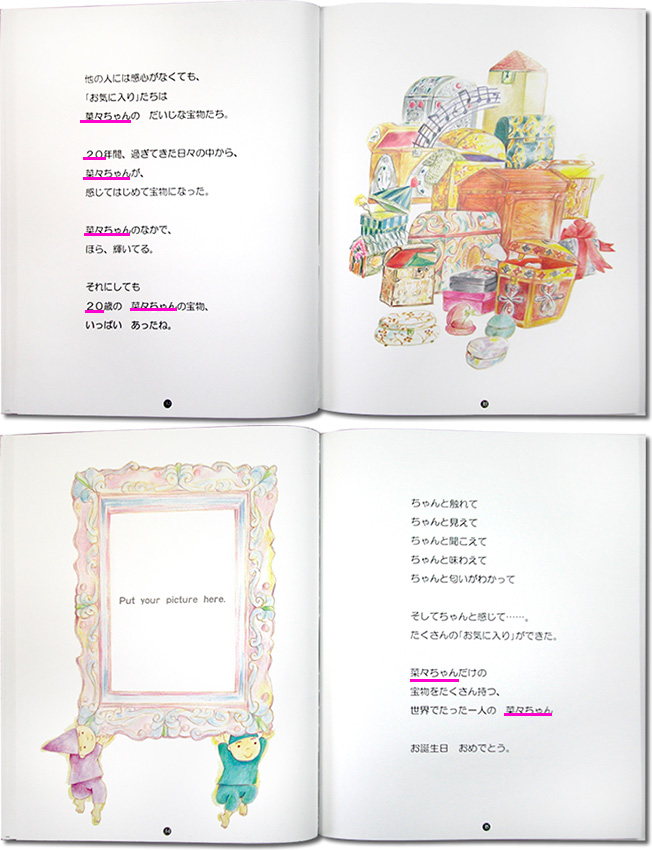 他の人には感心がなくても、
「お気に入り」たちは
菜々ちゃんの　だいじな宝物たち。
20年間、過ぎてきた日々の中から、
菜々ちゃんが、
感じてはじめて宝物になった。
菜々ちゃんのなかで、
ほら、輝いてる。
それにしても
20歳の　菜々ちゃんの宝物、
いっぱい　あったね。
Put your picture here.
ちゃんと触れて
ちゃんと見えて
ちゃんと聞こえて
ちゃんと味わえて
ちゃんと匂いがわかって
そしてちゃんと感じて……。
たくさんの「お気に入り」ができた。
菜々ちゃんだけの
宝物をたくさん持つ、
世界でたった一人の　菜々ちゃん
お誕生日　おめでとう。